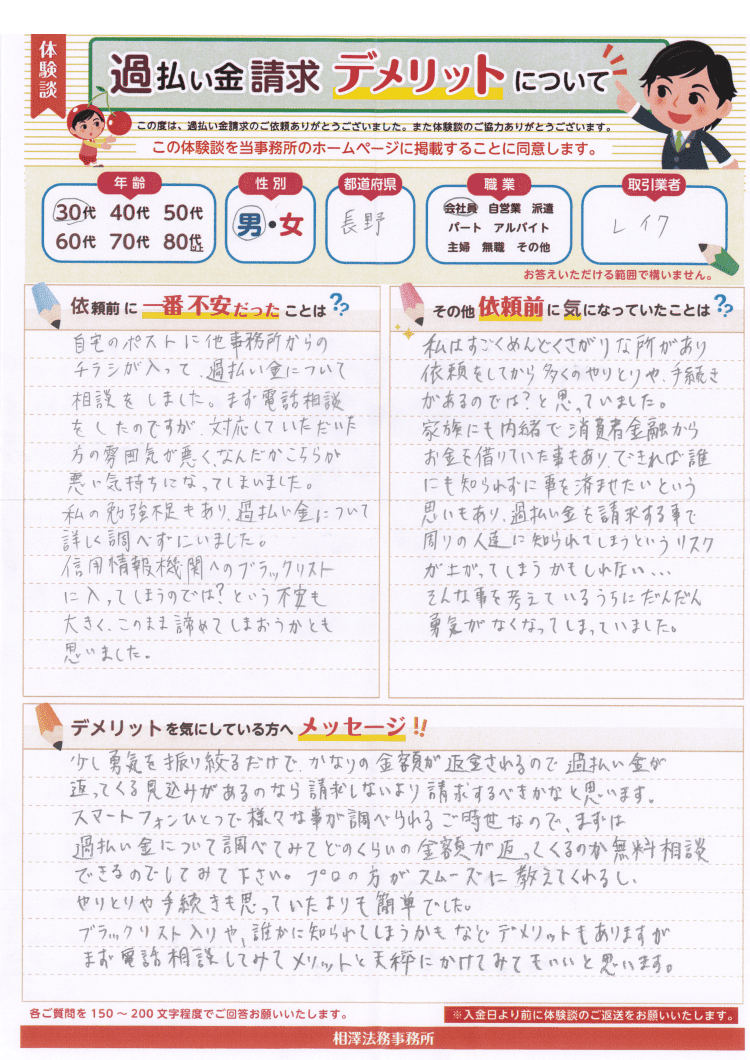 体験談
過払い金請求 デメリットについて
この度は、過払い金請求のご依頼ありがとうございました。また体験談のご協力ありがとうございます。
この体験談を当事務所のホームページに掲載することに同意します。
年齢
30代 40代 50代
60代 70代 80代以上
性別
男・女
都道府県
長野
職業
会社員 自営業 派遣
パート アルバイト
主婦 無職 その他
取引業者
レイク
お答えいただける範囲で構いません。
依頼前に一番不安だったことは??
自宅のポストに他事務所からの
チラシが入って、過払い金について
相談をしました。まず電話相談
をしたのですが、対応していただいた
方の雰囲気が悪く、なんだかこちらが
悪い気持ちになってしまいました。
私の勉強不足もあり、過払い金について
詳しく調べずにいました。
信用情報機関へのブラックリスト
に入ってしまうのでは?という不安も
大きく、このまま諦めてしまおうかとも
思いました。
その他依頼前に気になっていたことは??
私はすごくめんどくさがりな所があり
依頼をしてから多くのやりとりや、手続き
があるのでは?と思っていました。
家族にも内緒で消費者金融から
お金を借りていた事もあり、できれば誰
にも知られずに事を済ませたいという
思いもあり、過払い金を請求する事で
周りの人達に知られてしまうというリスク
が上がってしまうかもしれない...
そんな事を考えているうちにだんだん
勇気がなくなってしまっていました。
デメリットを気にしている方へメッセージ!!
少し勇気を振り絞るだけで、かなりの金額が返金されるので過払い金が
返ってくる見込みがあるのなら請求しないより請求するべきかなと思います。
スマートフォンひとつで様々な事が調べられるご時世なので、まずは
過払い金について調べてみてどのくらいの金額が返ってくるのか無料相談
できるのでしてみて下さい。プロの方がスムーズに教えてくれるし、
やりとりや手続きも思っていたよりも簡単でした。
ブラックリスト入りや、誰かに知られてしまうかもなどデメリットもありますが
まず電話相談してみてメリットと天秤にかけてみてもいいと思います。
各ご質問を150〜200文字程度でご回答お願いいたします。
※入金日より前に体験談のご返送をお願いいたします。
相澤法務事務所